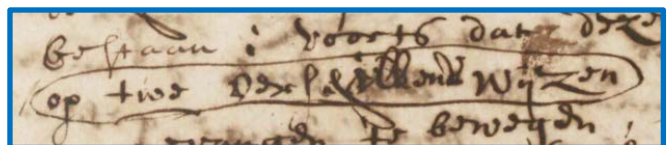 bestaan : voorts dat deze
op twee verschillende wijzen
te bewegen